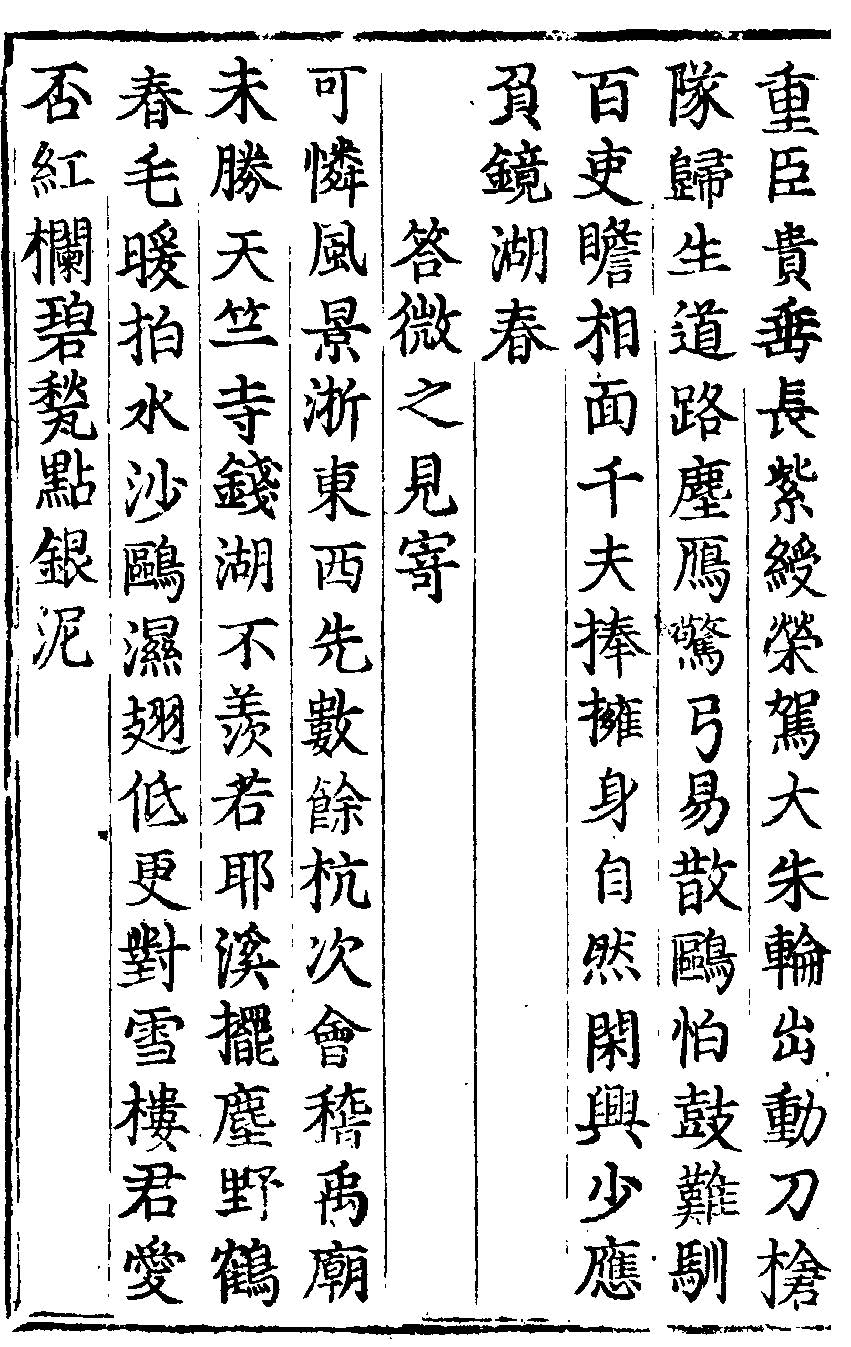 重臣貴垂長紫綬榮駕大朱輪出動刀槍
隊歸生道路塵鴈驚弓易散鷗怕鼓難馴
百吏瞻相面千夫捧擁身自然閑興少應
負鏡湖春
荅微之見寄
可憐風景浙東西先數餘杭次會稽禹廟
未勝天竺寺錢湖不羨若耶溪擺塵野鶴
春毛暖拍水沙鷗濕翅低更對雪樓君愛
否紅欄碧甃點銀泥